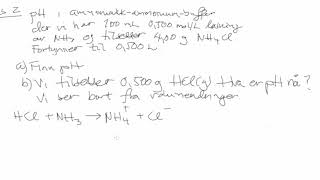 s 2 pH i ammoniakk-ammonium-buffer
der vi har 200 mL 0,500 mol/L løsning
av NH₃ og tilsetter 4,00 g NH₄Cl
Fortynner til 0,500 L
a) Finn pH
b) Vi tilsetter 0,500 g HCl(g) Hva er pH nå?
Vi ser bort fra volumendringer
HCl + NH₃ → NH₄⁺ + Cl⁻